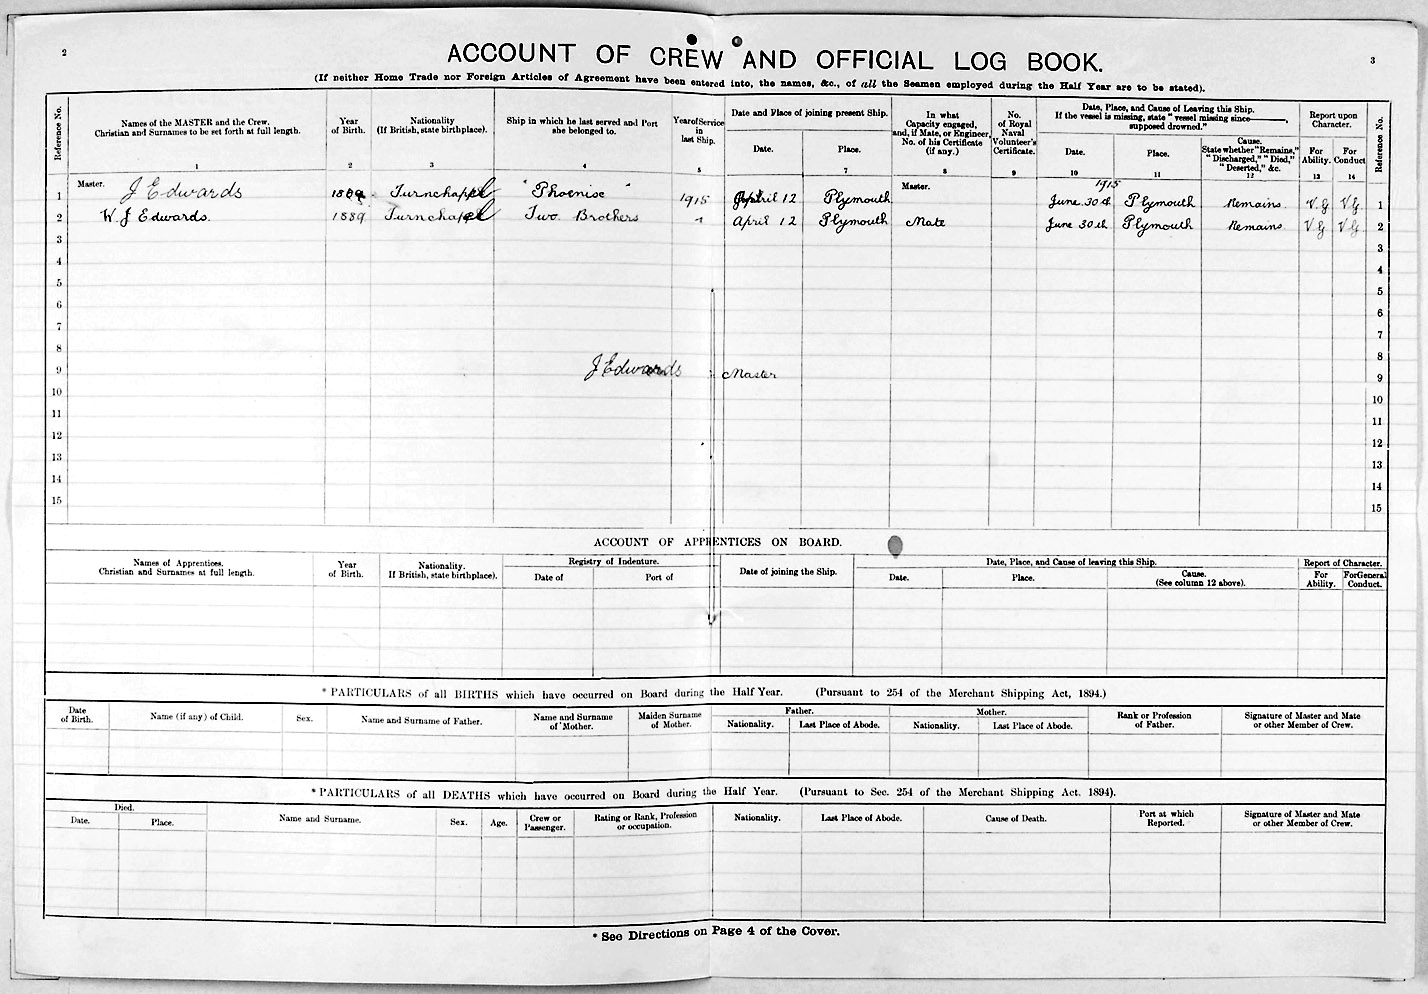 2
3
ACCOUNT OF CREW AND OFFICIAL LOG BOOK.
(If neither Home Trade nor Foreign Articles of Agreement have been entered into, the names, &c., of all the Seamen employed during the Half Year are to be stated).
Reference No.
Names of the MASTER and the Crew. Christian and Surnames to be set forth at full length. 1
Year of Birth. 2
Nationality (If British, state birthplace). 3
Ship in which he last served and Port she belonged to. 4
Year of Service in last Ship. 5
Date and Place of joining present Ship.
Date.
Place. 7
In what Capacity engaged, and, if Mate, or Engineer, No. of his Certificate (if any.) 8
No. of Royal Naval Volunteer's Certificate. 9
Date, Place, and Cause of Leaving this Ship. If the vessel is missing, state "vessel missing since———, supposed drowned."
Date. 10
Place. 11
Cause. State whether "Remains," "Discharged," "Died," "Deserted," &c. 12
Report upon Character.
For Ability. 13
For Conduct 14
Reference No.
1915
1 Master. J Edwards Turnchapel "Phoenise" 1915 April 12 Plymouth Master. June 30th Plymouth Remains. V.G V.G 1
2 W. J Edwards. 1889 Turnchapel Two Brothers " April 12 Plymouth Mate June 30th Plymouth Remains V G V G 2
3 3
4 4
5 5
6 6
7 7
8 8
J Edwards Master
9 9
10 10
11 11
12 12
13 13
14 14
15 15
ACCOUNT OF APPRENTICES ON BOARD.
Names of Apprentices. Christian and Surnames at full length.
Year of Birth.
Nationality. If British, state birthplace).
Registry of Indenture.
Date of
Port of
Date of joining the Ship.
Date, Place, and Cause of leaving this Ship.
Date.
Place.
Cause. (See column 12 above).
Report of Character.
For Ability.
For General Conduct.
* PARTICULARS of all BIRTHS which have occurred on Board during the Half Year. (Pursuant to 254 of the Merchant Shipping Act, 1894.)
Date of Birth.
Name (if any) of Child.
Sex.
Name and Surname of Father.
Name and Surname of Mother.
Maiden Surname of Mother.
Father.
Nationality.
Last Place of Abode.
Mother.
Nationality.
Last Place of Abode.
Rank or Profession of Father.
Signature of Master and Mate or other Member of Crew.
* PARTICULARS of all DEATHS which have occurred on Board during the Half Year. (Pursuant to Sec. 254 of the Merchant Shipping Act. 1894).
Died.
Date.
Place.
Name and Surname.
Sex.
Age.
Crew or Passenger.
Rating or Rank, Profession or occupation.
Nationality.
Last Place of Abode.
Cause of Death.
Port at which Reported.
Signature of Master and Mate or other Member of Crew.
* See Directions on Page 4 of the Cover.